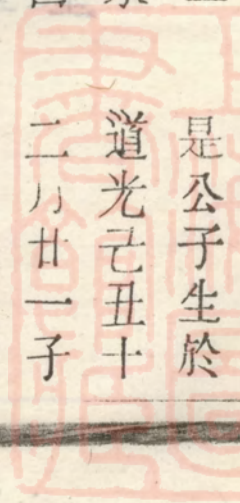 是公子生於
道光己丑十
二月廿一子